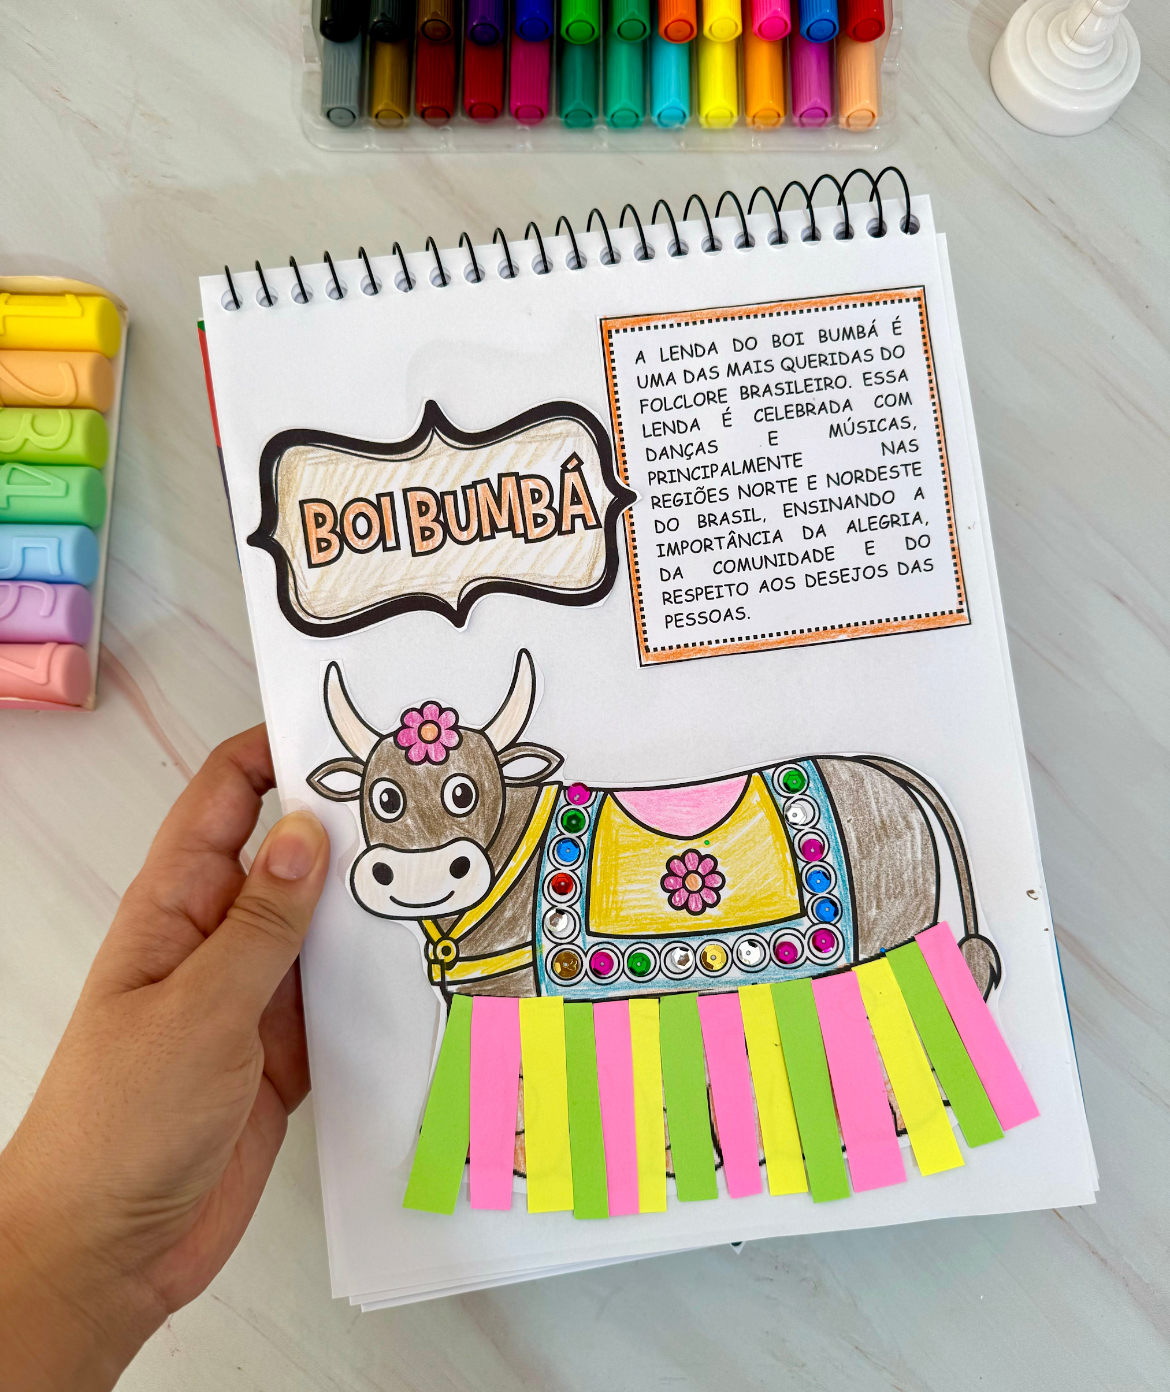 BOI BUMBÁ
A LENDA DO BOI BUMBÁ É
UMA DAS MAIS QUERIDAS DO
FOLCLORE BRASILEIRO. ESSA
LENDA É CELEBRADA COM
DANÇAS E MÚSICAS,
PRINCIPALMENTE NAS
REGIÕES NORTE E NORDESTE
DO BRASIL, ENSINANDO A
IMPORTÂNCIA DA ALEGRIA,
DA COMUNIDADE E DO
RESPEITO AOS DESEJOS DAS
PESSOAS.
1
2
3
4
5
6
7